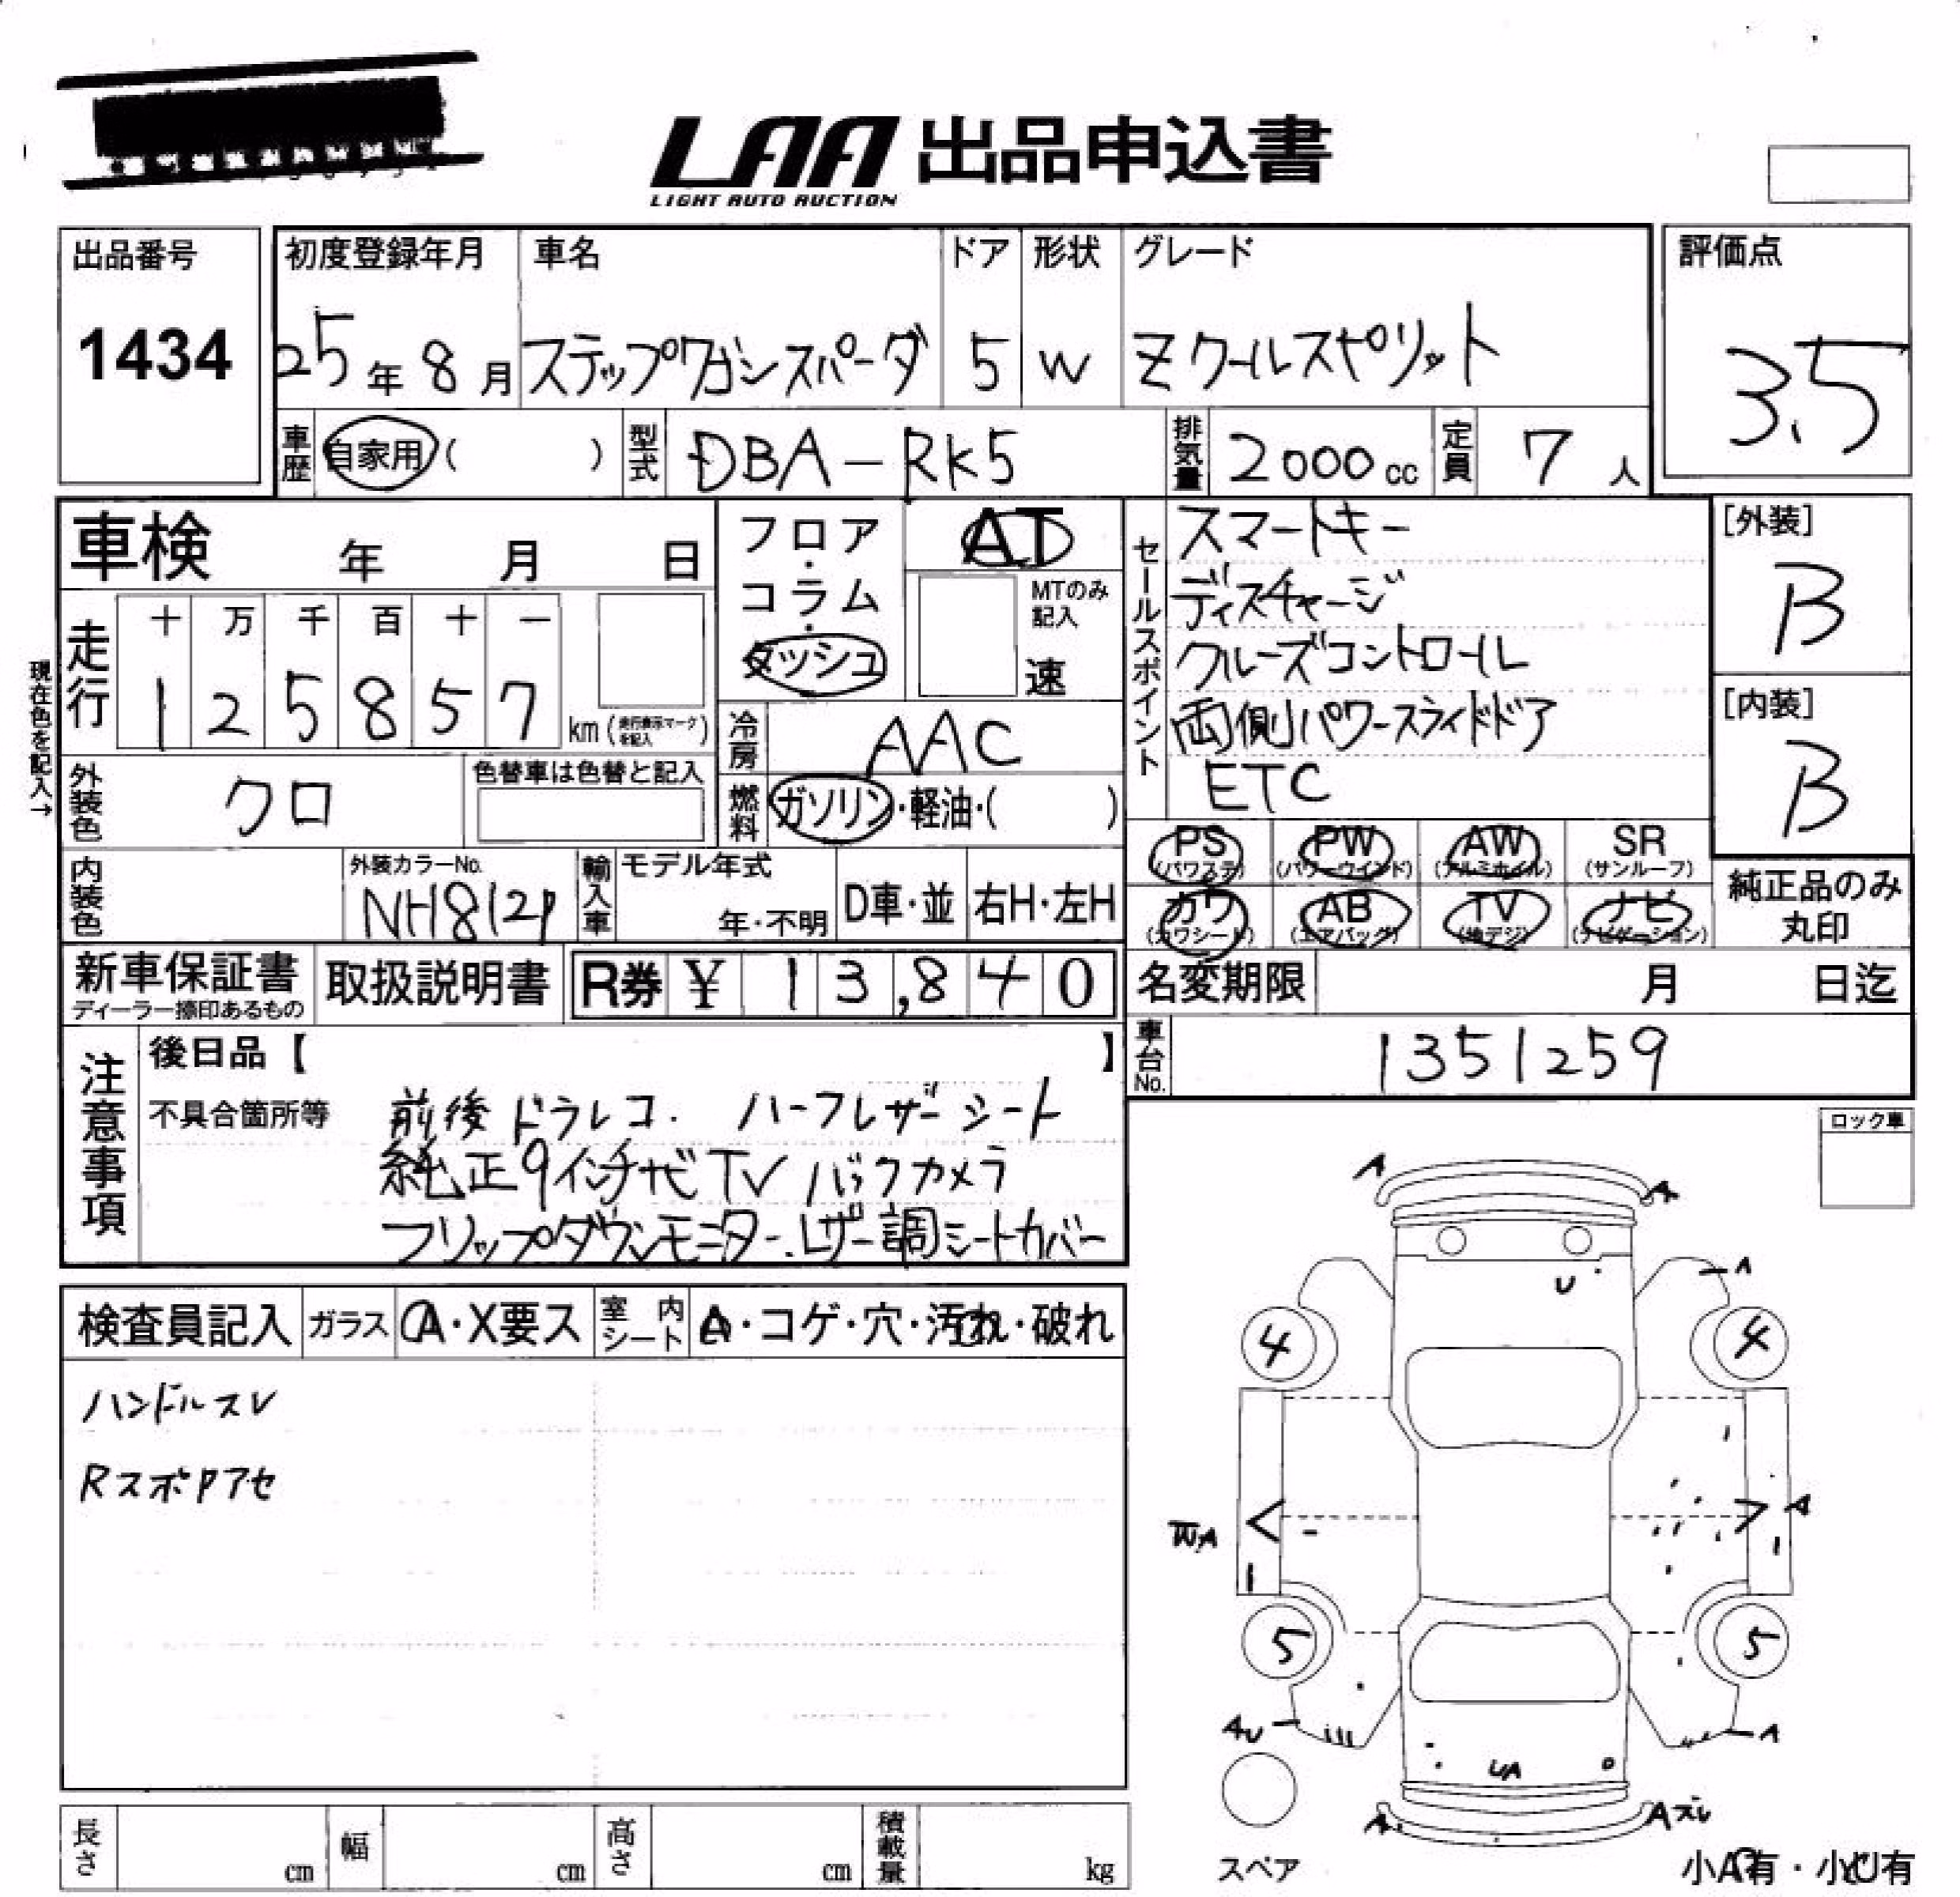 LAA 出品申込書
LIGHT AUTO AUCTION
出品番号
1434
初度登録年月
25年8月
車名
ステップワゴンスパーダ
ドア
5
形状
W
グレード
Zクールスピリット
評価点
3.5
車歴
自家用( )
型式
DBA-RK5
排気量
2000cc
定員
7人
車検 年 月 日
フロア・コラム・ダッシュ
AT
MTのみ記入
速
セールスポイント
スマートキー
ディスチャージ
クルーズコントロール
両側パワースライドドア
ETC
[外装]
B
[内装]
B
現在色を記入→
走行
十 万 千 百 十 一
1 2 5 8 5 7
km(走行表示マークを記入)
冷房
AAC
外装色
クロ
色替車は色替と記入
燃料
ガソリン・軽油・( )
PS(パワステ) PW(パワーウインド) AW(アルミホイル) SR(サンルーフ)
カワ(カワシート) AB(エアバッグ) TV(地デジ) ナビ(ナビゲーション)
純正品のみ丸印
内装色
外装カラーNo.
NH812P
輸入車
モデル年式
年・不明
D車・並
右H・左H
新車保証書
ディーラー捺印あるもの
取扱説明書
R券 ¥ 13,840
名変期限 月 日迄
車台No.
1351259
注意事項
後日品【 】
不具合箇所等
前後ドラレコ. ハーフレザーシート
純正9インチナビ TV バックカメラ
フリップダウンモニター.レザー調シートカバー
ロック車
検査員記入
ガラス
A・X要ス
室内シート
A・コゲ・穴・汚れ・破れ
ハンドルスレ
RスポPアセ
A
A
U
A
4
4
A
A
5
5
AU
A
UA
A
Aズレ
スペア
小A有・小U有
長さ cm
幅 cm
高さ cm
積載量 kg